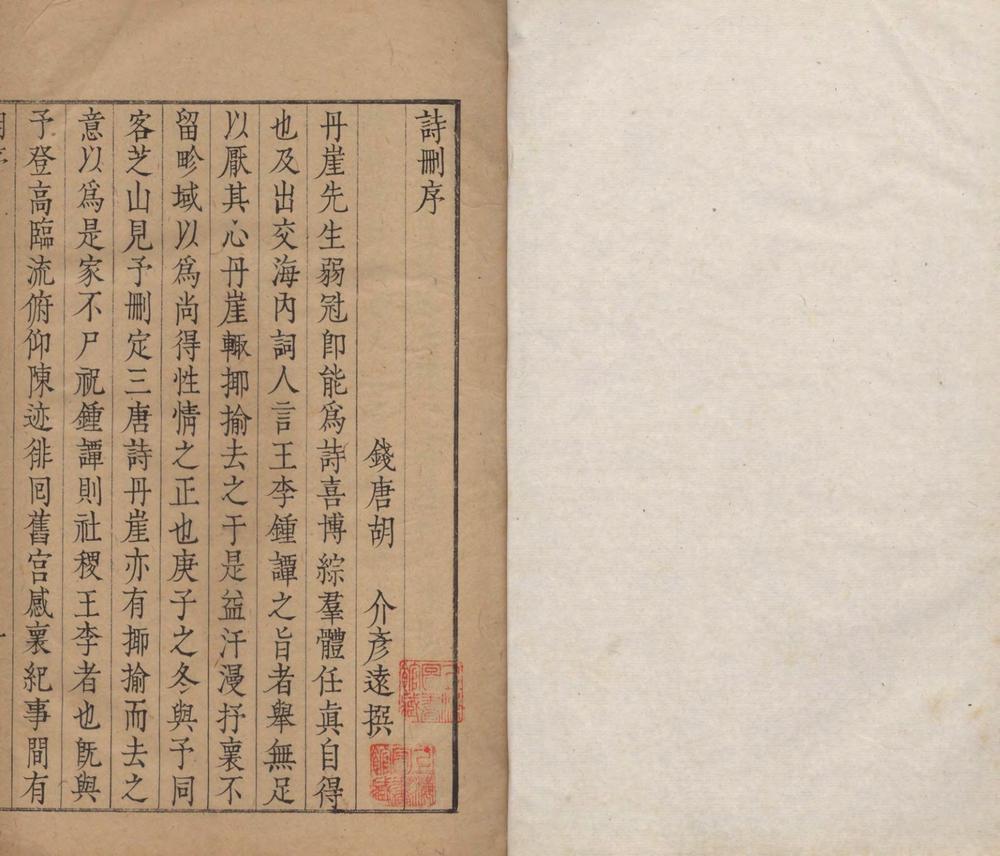 詩刪序
錢唐胡 介彥遠撰
丹崖先生弱冠卽能爲詩喜博綜羣體任眞自得
也及出交海內詞人言王李鍾譚之旨者舉無足
以厭其心丹崖輙揶揄去之于是益汗漫抒襄不
留畛域以爲尚得性情之正也庚子之冬與予同
客芝山見予刪定三唐詩丹崖亦有揶揄而去之
意以爲是家不尸祝鍾譚則社稷王李者也旣與
予登高臨流俯仰陳迹徘囘舊宫感襄紀事間有